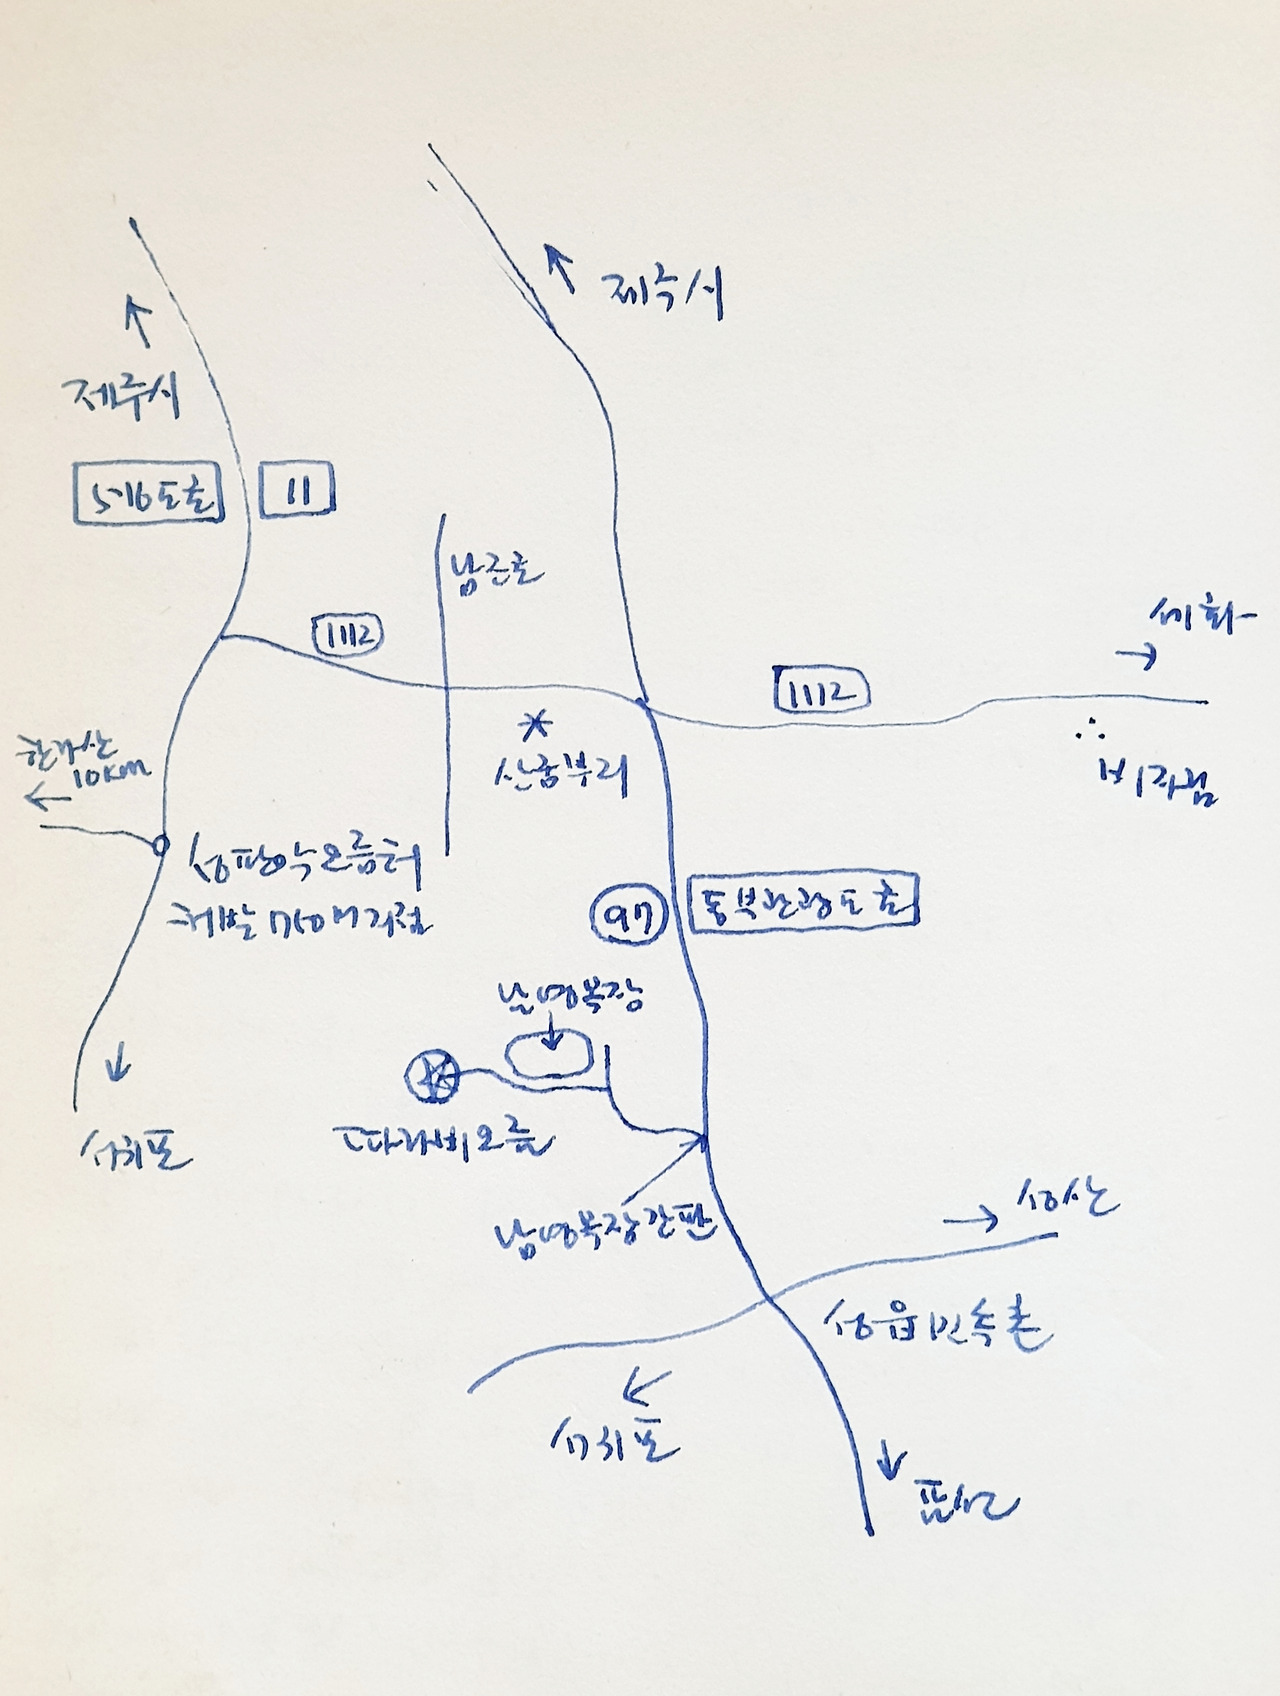 제주시
제주시
5·16도로
11
남조로
1112
세화
1112
한라산
10km
산굼부리
비자림
성판악오름터
해발 750m지점
97
동부관광도로
남영목장
따라비오름
서귀포
남영목장간판
성산
성읍민속촌
서귀포
표선